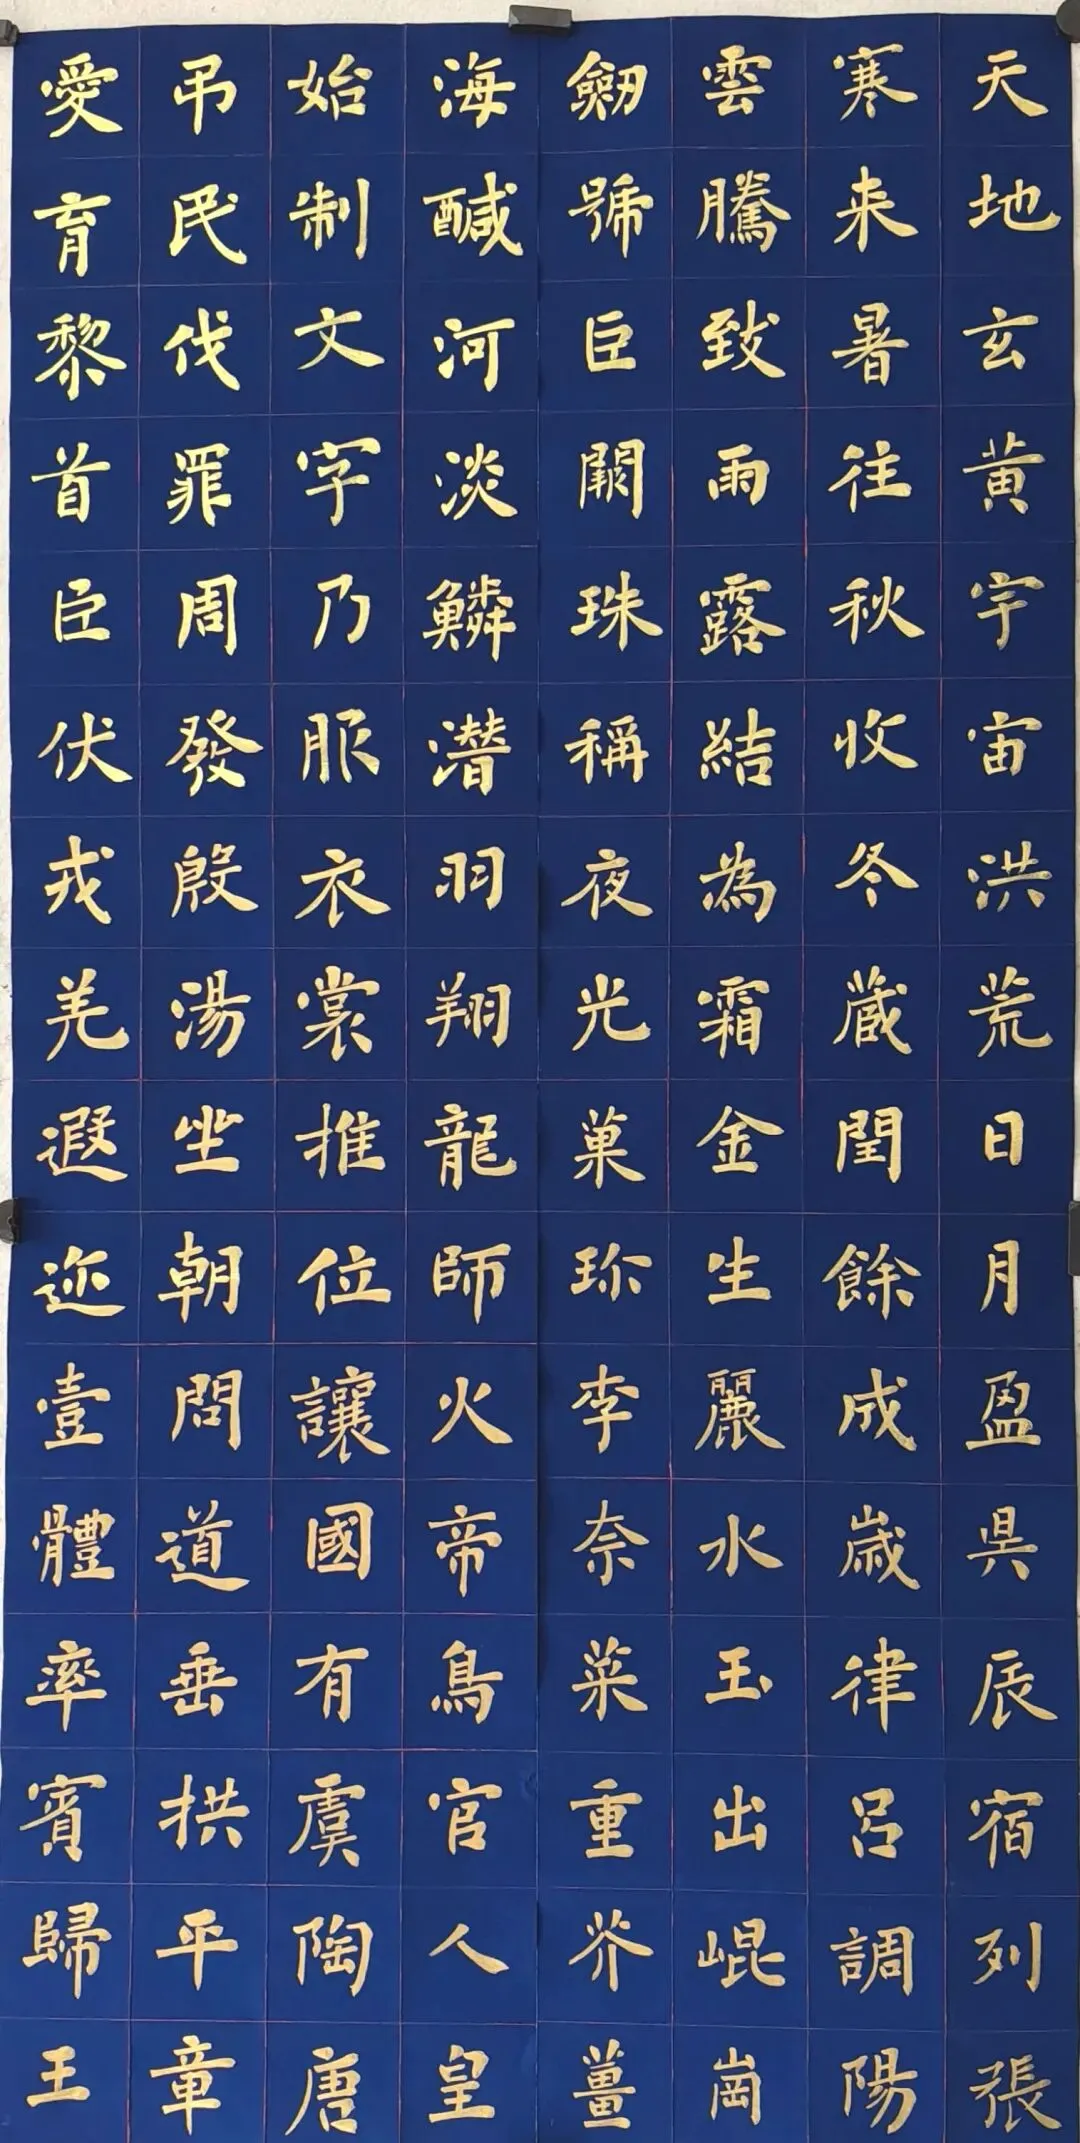 天地玄黃宇宙洪荒日月盈昃辰宿列張
寒来暑往秋收冬藏閏餘成歲律呂調陽
雲騰致雨露結為霜金生麗水玉出崐崗
劒號巨闕珠稱夜光菓珎李奈菜重芥薑
海醎河淡鱗潛羽翔龍師火帝鳥官人皇
始制文字乃服衣裳推位讓國有虞陶唐
弔民伐罪周發殷湯坐朝問道垂拱平章
愛育黎首臣伏戎羌遐迩壹體率賓歸王